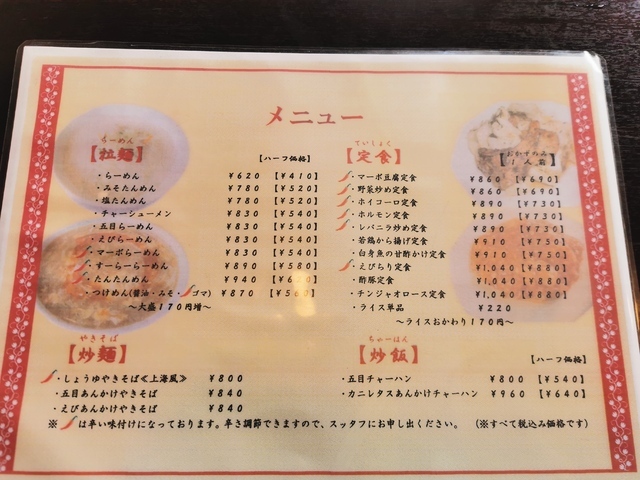 メニュー
らーめん
【拉麺】 【ハーフ価格】
・らーめん ￥620 【￥410】
・みそたんめん ￥780 【￥520】
・塩たんめん ￥780 【￥520】
・チャーシューメン ￥830 【￥540】
・五目らーめん ￥830 【￥540】
・えびらーめん ￥830 【￥540】
・マーボらーめん ￥830 【￥540】
・すーらーらーめん ￥890 【￥580】
・たんたんめん ￥940
・つけめん(醤油・みそ・ゴマ) ￥870 【￥560】
～大盛170円増～
ていしょく
【定食】 【おかずのみ 1人前】
・マーボ豆腐定食 ￥860 【￥690】
・野菜炒め定食 ￥860 【￥690】
・ホイコーロ定食 ￥890 【￥730】
・ホルモン定食 ￥890 【￥730】
・レバニラ炒め定食 ￥890 【￥730】
・若鶏から揚げ定食 ￥910 【￥750】
・白身魚の甘酢かけ定食 ￥910 【￥750】
・えびちり定食 ￥1,040 【￥880】
・酢豚定食 ￥1,040 【￥880】
・チンジャオロース定食 ￥1,040 【￥880】
・ライス単品 ￥220
～ライスおかわり170円～
やきそば
【炒麺】
・しょうゆやきそば≪上海風≫ ￥800
・五目あんかけやきそば ￥840
・えびあんかけやきそば ￥840
ちゃーはん
【炒飯】 【ハーフ価格】
・五目チャーハン ￥800 【￥540】
・カニレタスあんかけチャーハン ￥960 【￥640】
※ は辛い味付けになっております。辛さ調節できますので、スッタフにお申し出ください。 (※すべて税込み価格です)